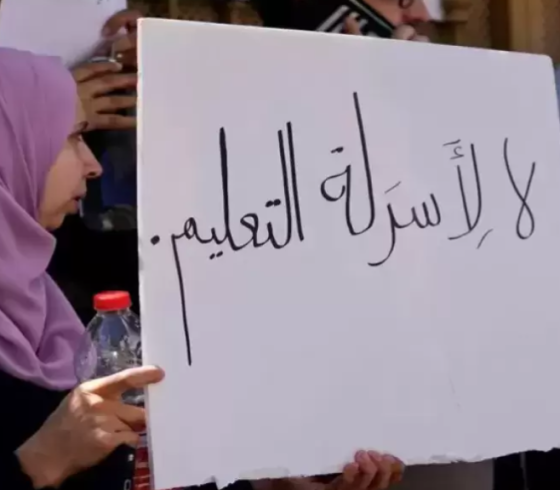 لا لِأَسرَلة التعليم.